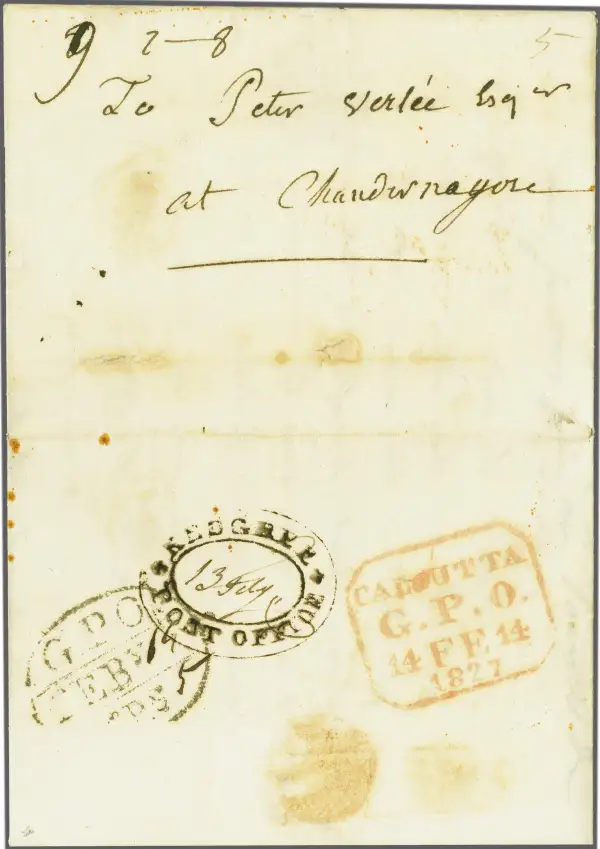 9 2–8
5
To Peter Verlée Esqr
at Chandernagore
KEDGEREE
13 Feby
POST OFFICE
CALCUTTA
G. P. O.
14 FE 14
1827
G P O
FEBY